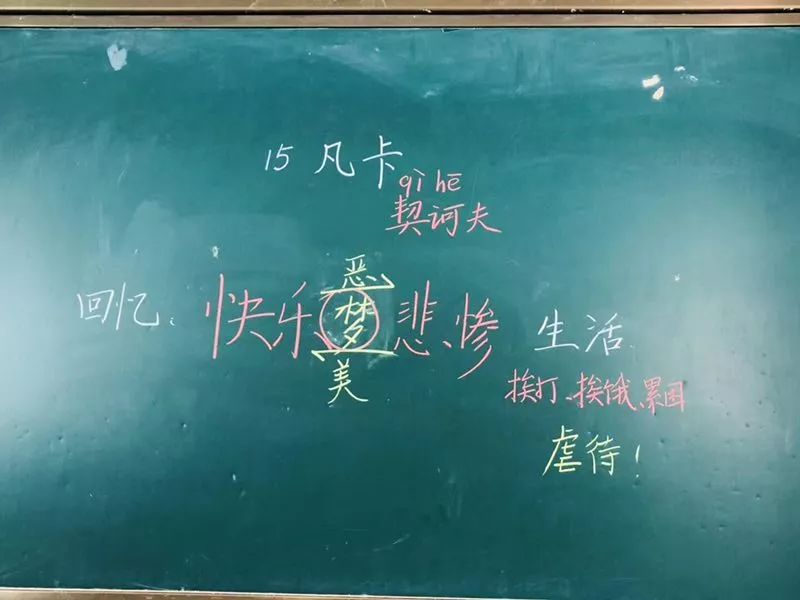 15 凡卡
qì hē
契诃夫
恶
回忆: 快乐 梦 悲惨 生活
美
挨打、挨饿、累困
虐待!